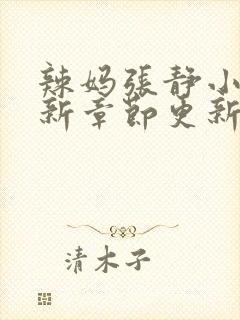 辣妈張静小
新章節更新
清木子